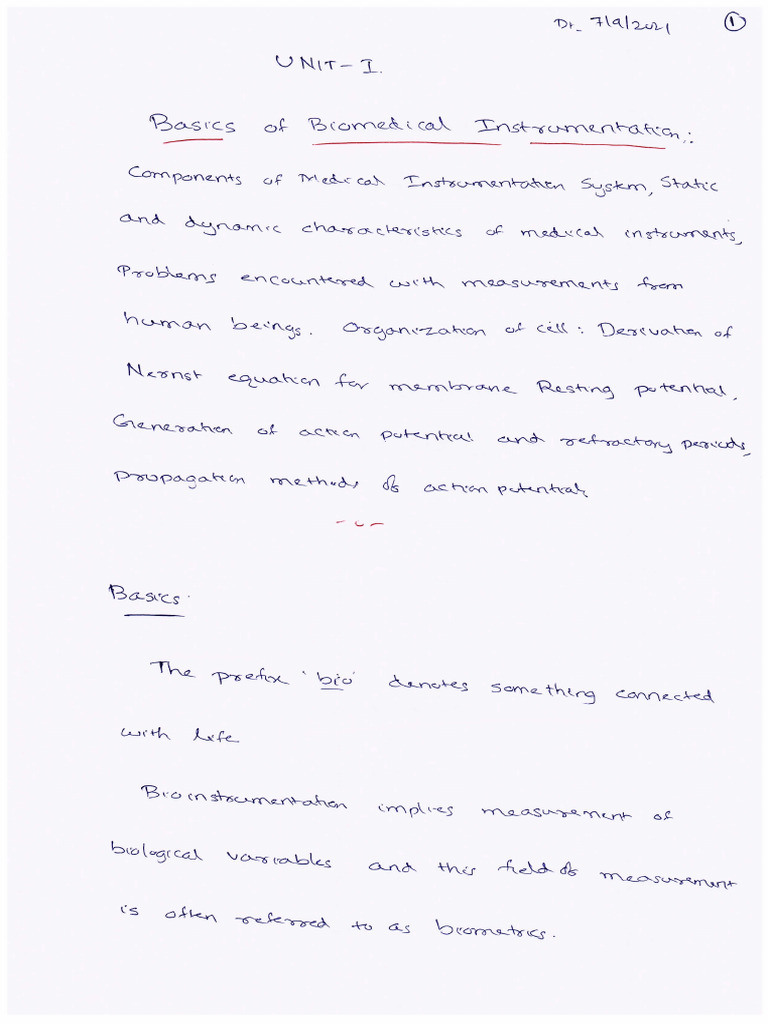 Dt_ 7/9/2021
1
UNIT-I.
Basics of Biomedical Instrumentation:
Components of Medical Instrumentation System, Static
and dynamic characteristics of medical instruments,
Problems encountered with measurements from
human beings. Organization of cell: Derivation of
Nernst equation for membrane Resting potential,
Generation of action potential and refractory periods,
propagation methods of action potential.
Basics.
The prefix 'bio' denotes something connected
with life
Bioinstrumentation implies measurement of
biological variables and this field of measurement
is often referred to as biometrics.